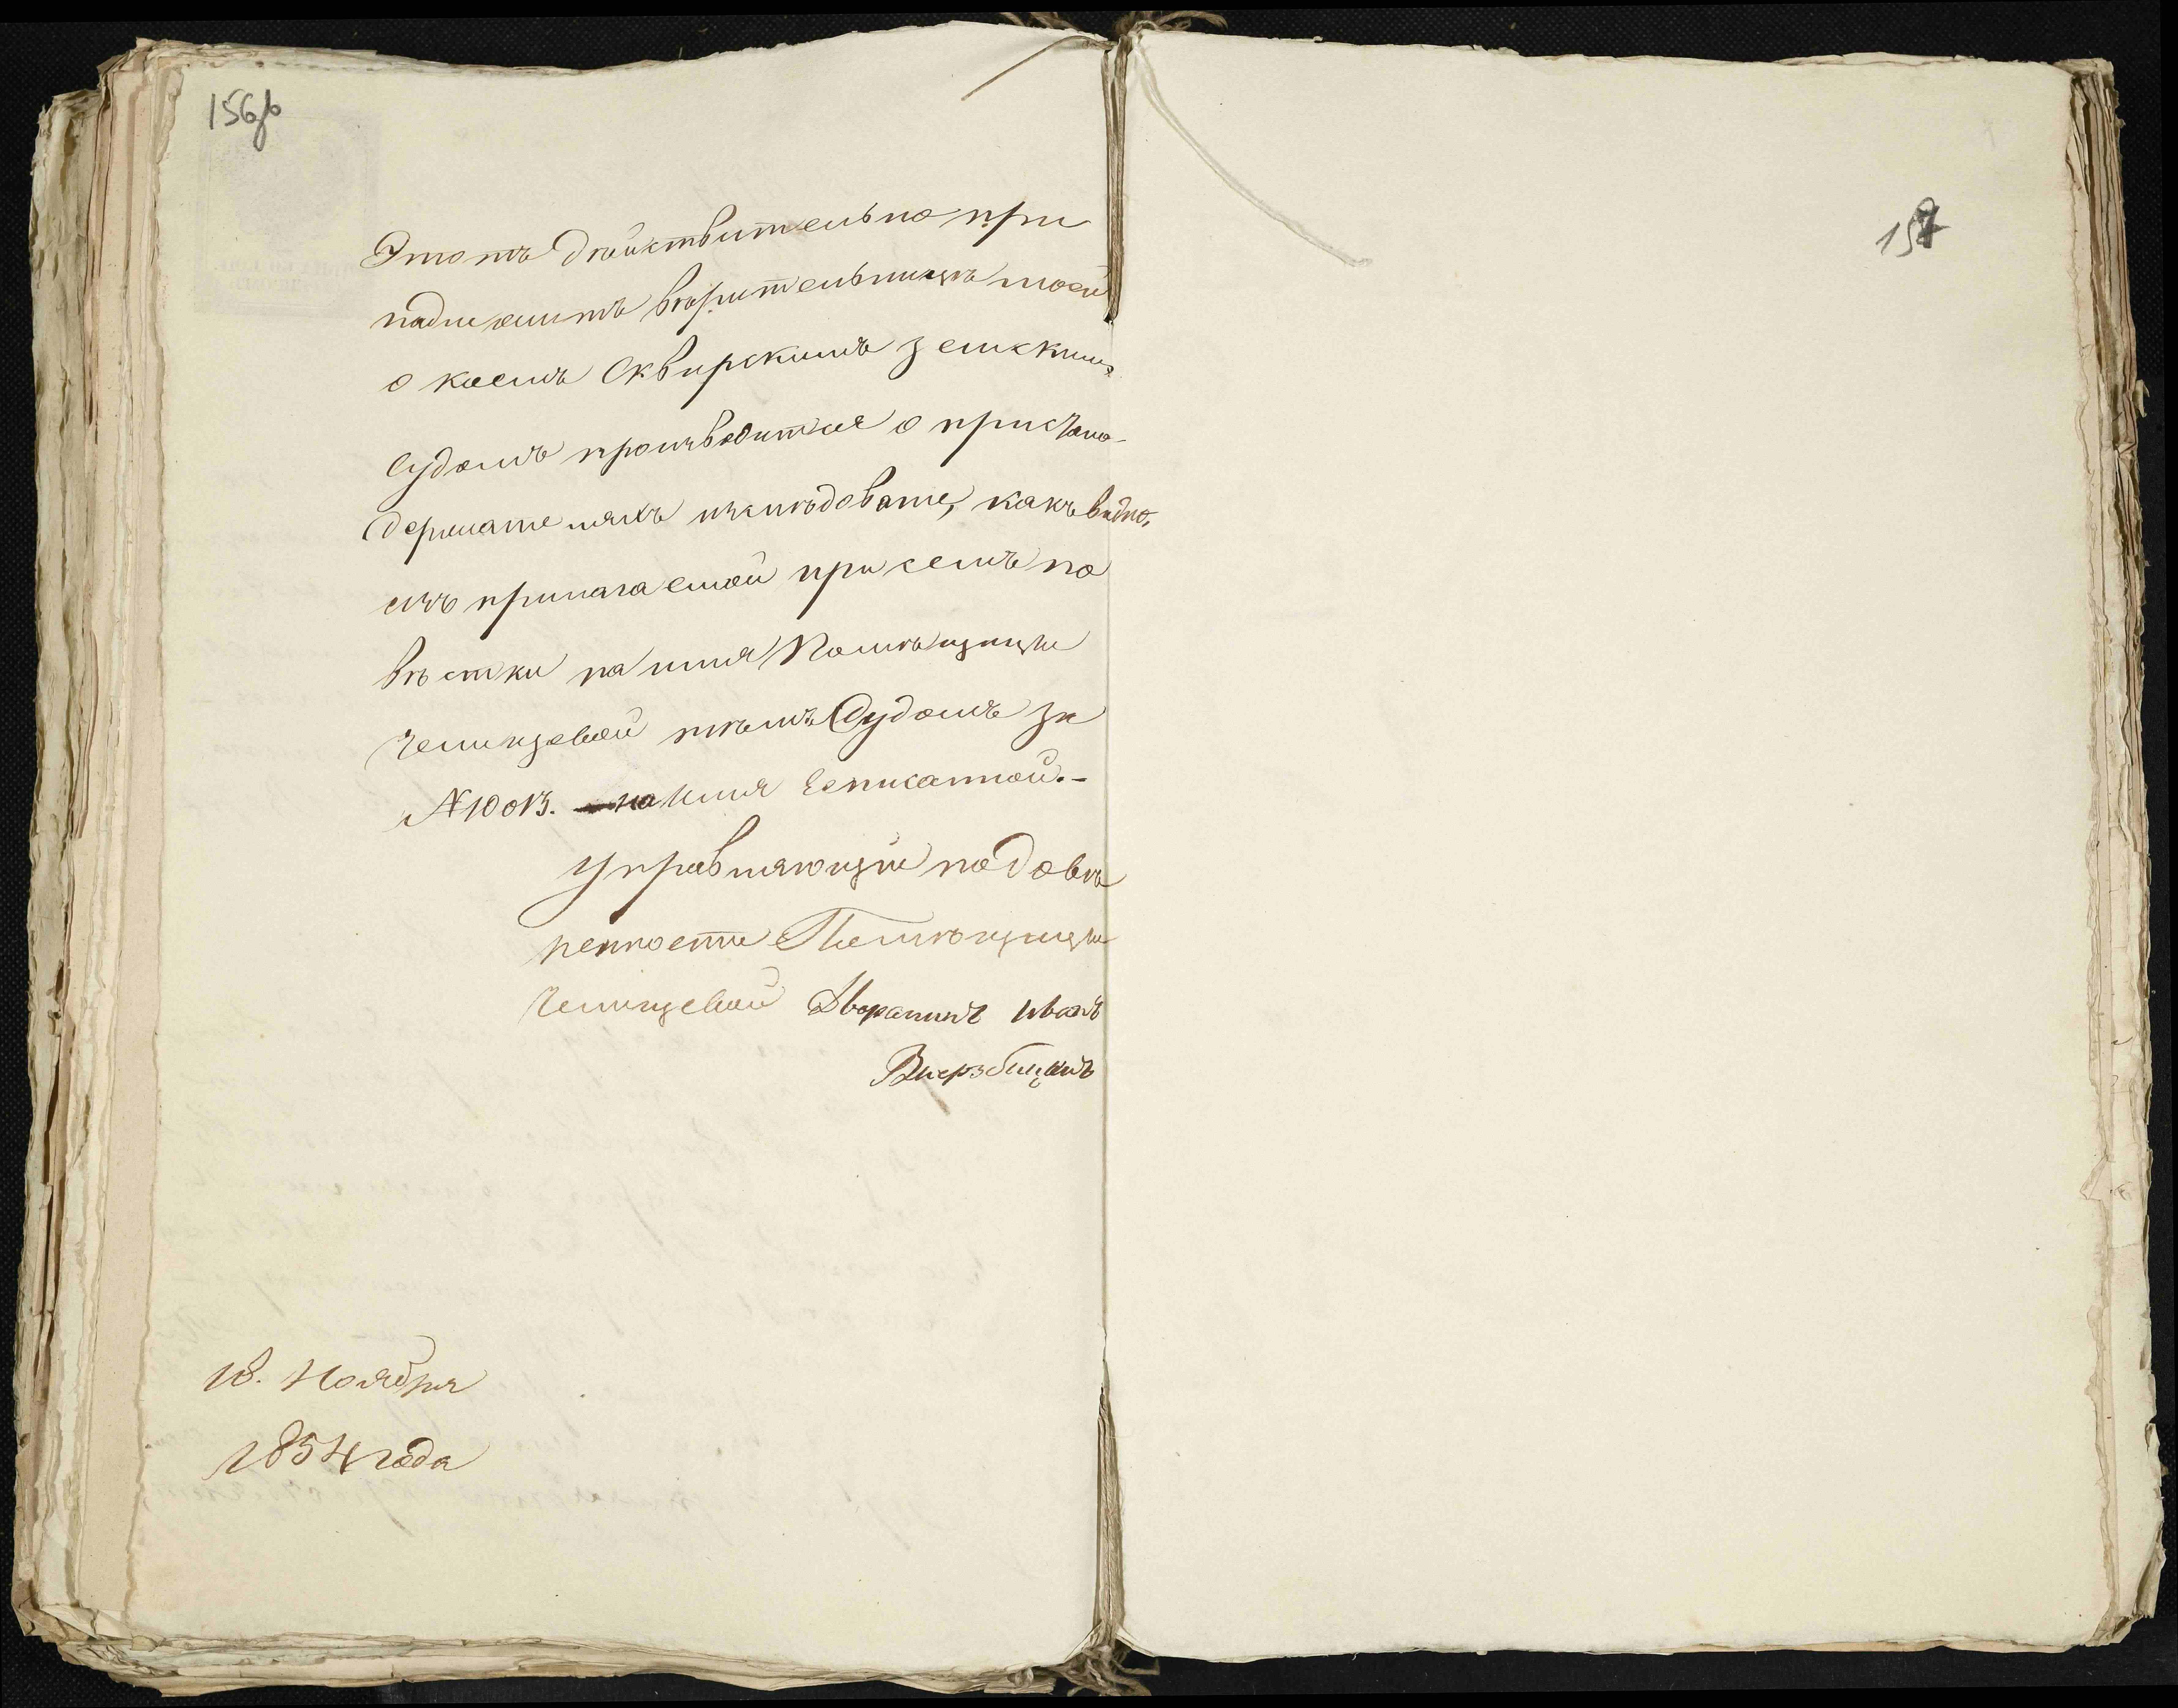 156об
Этотъ действительно при
надлежитъ вѣрительницѣ моей
о коемъ Сквирскимъ земскимъ
Судомъ производится о пристано-
держателяхъ изслѣдованіе, какъ видно,
изъ прилагаемой при семъ по
вѣстки на имя Помѣщицы
Челищевой тѣмъ Судомъ за
№ 10013. на имя Ея писанной.-
Управляющій по довѣ
ренности Помѣщицы
Челищевой Дворанинъ Иванъ
Виерзбицкий
18. Ноября
1854 года
157